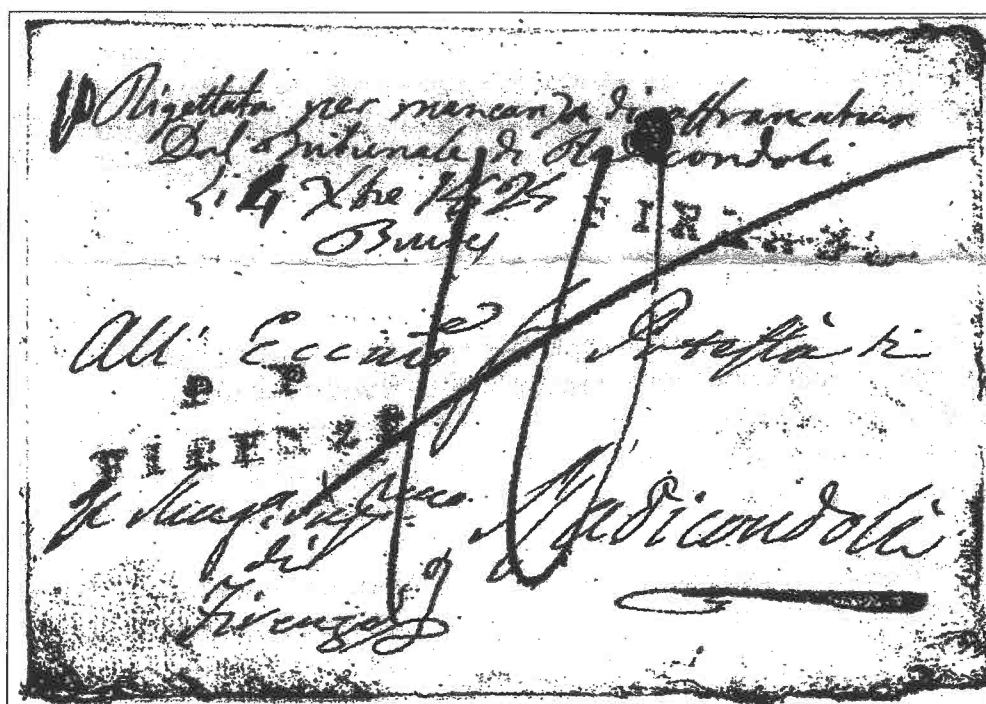 Rigettata per mancanza di affrancatura
Dal Tribunale di Radicondoli
li 4 Xbre 1825
FIRENZE
All' Eccmo Potestà di
P P
FIRENZE
Radicondoli
di
Firenze